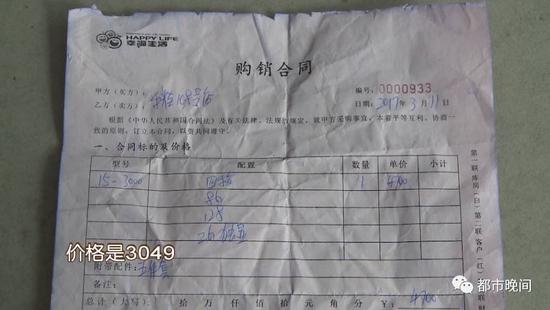 HAPPY LIFE
幸福生活
购销合同
甲方(买方):
编号:0000933
乙方(卖方):
日期:2017年3月11日
根据《中华人民共和国合同法》及有关法律、法规的规定,就甲方采购事宜,本着平等互利、协商一
致的原则,订立本合同,以资共同遵守。
一、合同标的及价格
型号 配置 数量 单价 小计
15-3000 四核 1 4700
8G
128
2G独显
价格是3049
附带配件:五件套
备注:
总计(大写): 拾 万 仟 佰 拾 元 角 分 ¥:4700
第一联库房(白)第二联客户(红)
都市晚间